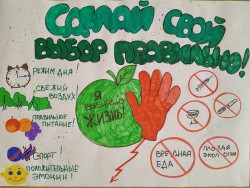 СДЕЛАЙ СВОЙ
ВЫБОР ПРАВИЛЬНО!
РЕЖИМ ДНЯ!
СВЕЖИЙ
ВОЗДУХ!
ПРАВИЛЬНОЕ
ПИТАНИЕ!
СПОРТ!
ПОЛОЖИТЕЛЬНЫЕ
ЭМОЦИИ!
Я
ВЫБИРАЮ
ЖИЗНЬ!
ВРЕДНАЯ
ЕДА
ПЛОХАЯ
ЭКОЛОГИЯ